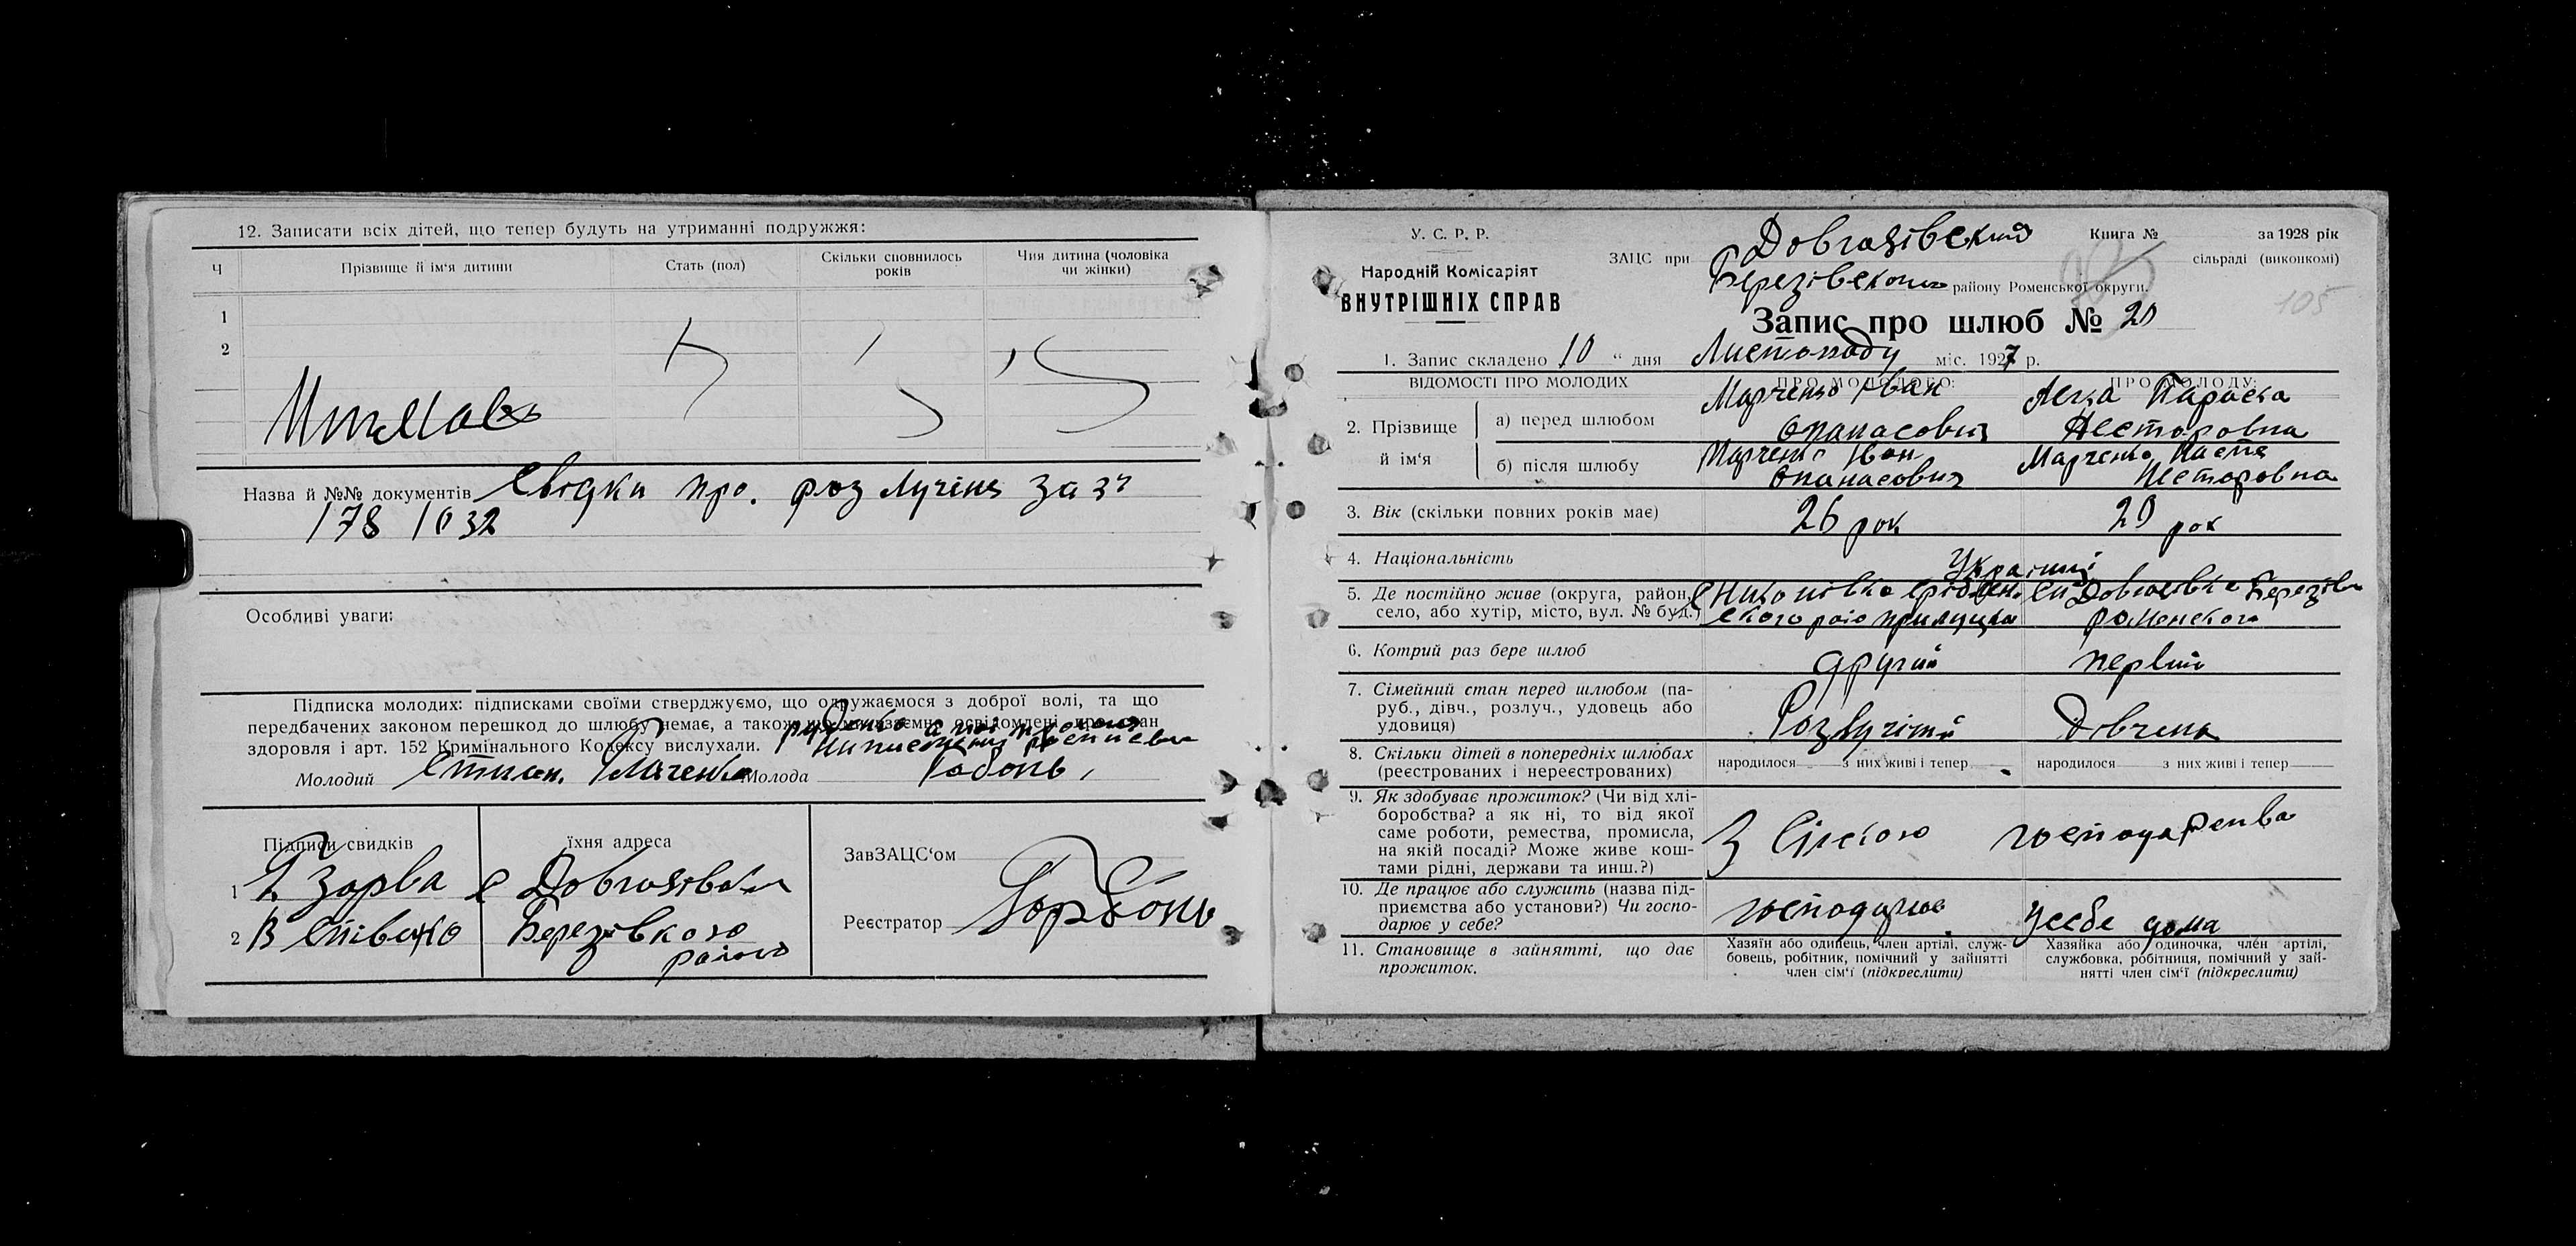 12. Записати всіх дітей, що тепер будуть на утриманні подружжя:
Ч
Прізвище й ім'я дитини
Стать (пол)
Скільки сповнилось років
Чия дитина (чоловіка чи жінки)
1
2
Назва й №№ документів Свідки про. розлучіня за з'
178 1032
Особливі уваги:
Підписка молодих: підписками своїми стверджуємо, що одружаємося з доброї волі, та що
передбачених законом перешкод до шлюбу немає, а також що взаємно освідомлені про стан
здоровля і арт. 152 Кримінального Кодексу вислухали.
Молодий
Молода
Підписи свидків
їхня адреса
1 Зорва с Dobrasiвки
2 В Співако Березівкою
раіону
ЗавЗАЦС'ом
Реєстратор Горбонь
У. С. Р. Р.
Народній Комісаріят
ВНУТРІШНІХ СПРАВ
Книга №
за 1928 рік
ЗАЦС при
сільраді (виконкомі)
Березівского району Роменської округи.
105
Запис про шлюб № 20
1. Запис складено 10 " дня Листопаду міс. 1927 р.
ВІДОМОСТІ ПРО МОЛОДИХ
ПРО МОЛОДОГО:
ПРО МОЛОДУ:
2. Прізвище й ім'я
а) перед шлюбом
Марченко Іван
Опанасович
Параска
Несторовна
б) після шлюбу
Марченко Іван
Опанасович
Марченко
Несторовна
3. Вік (скільки повних років має)
26 рок
20 рок
4. Національність
Українці
5. Де постійно живе (округа, район,
село, або хутір, місто, вул. № буд.)
ского раіо прилуцка
роменского
6. Котрий раз бере шлюб
другий
первий
7. Сімейний стан перед шлюбом (па-
руб., дівч., розлуч., удовець або
удовиця)
Розлучіний
Дівчена
8. Скільки дітей в попередніх шлюбах
(реєстрованих і нереєстрованих)
народилося з них живі і тепер
народилося з них живі і тепер
9. Як здобуває прожиток? (Чи від хлі-
боробства? а як ні, то від якої
саме роботи, ремества, промисла,
на якій посаді? Може живе кош-
тами рідні, держави та инш.?)
З Сілскою господарства
10. Де працює або служить (назва під-
приємства або установи?) Чи госпо-
дарює у себе?
господарює
усебе дома
11. Становище в зайнятті, що дає
прожиток.
Хазяїн або одинець, член артілі, служ-
бовець, робітник, помічний у зайнятті
член сім'ї (підкреслити)
Хазяйка або одиночка, член артілі,
службовка, робітниця, помічний у зай-
нятті член сім'ї (підкреслити)